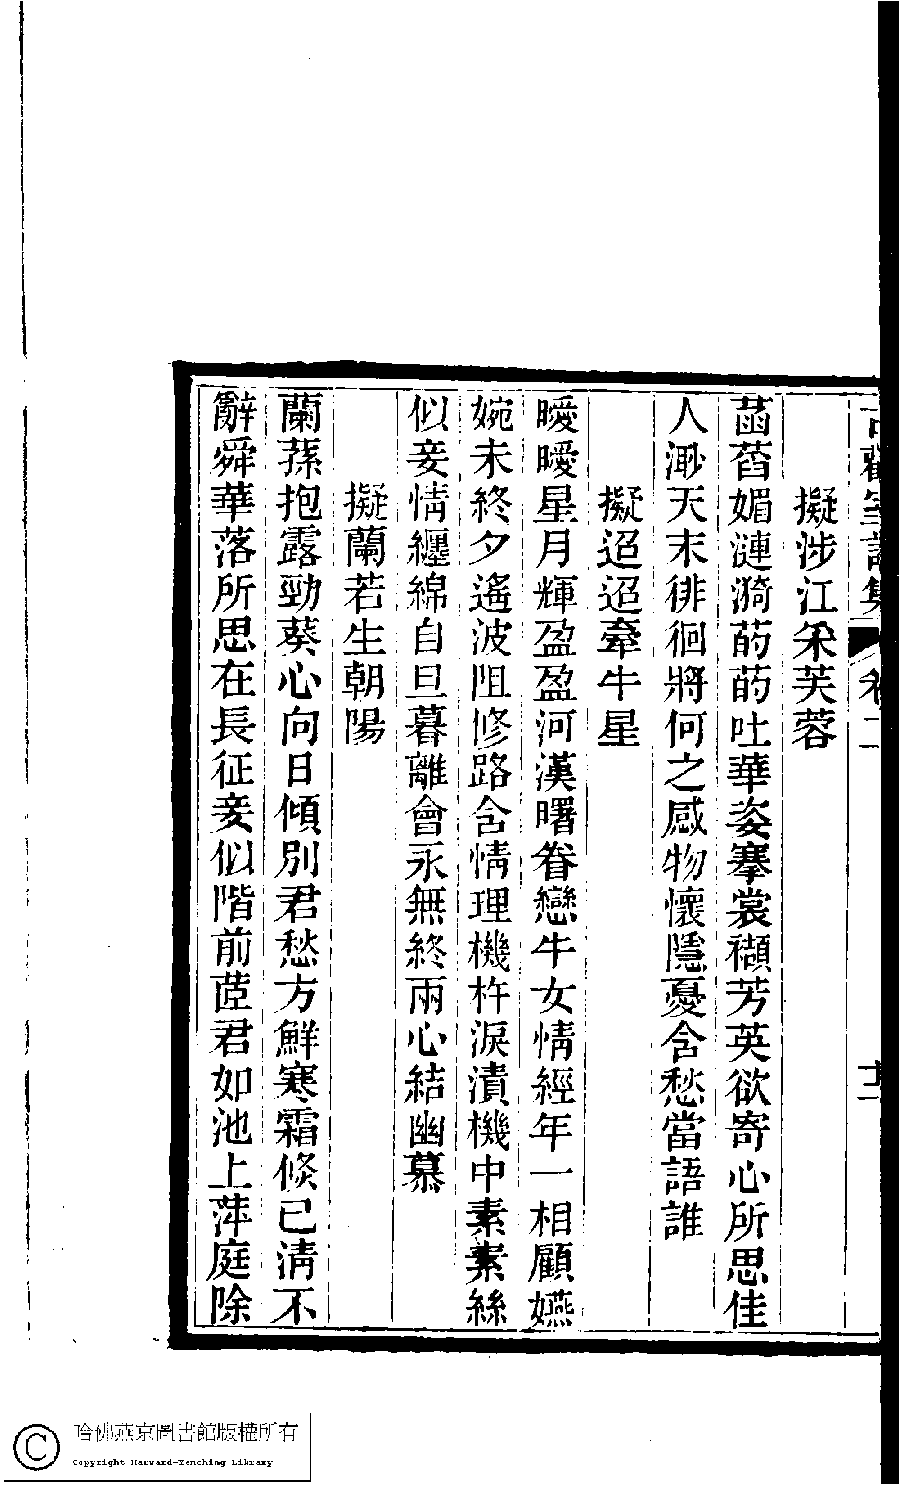 古歡室詩集 卷二 十二
擬涉江采芙蓉
菡萏媚漣漪菂菂吐華姿搴裳襭芳英欲寄心所思佳
人渺天末徘徊將何之感物懷隱憂含愁當語誰
擬迢迢牽牛星
曖曖星月輝盈盈河漢曙眷戀牛女情經年一相顧嬿
婉未終夕遙波阻修路含情理機杼淚漬機中素素絲
似妾情纏綿自旦暮離會永無終兩心結幽慕
擬蘭若生朝陽
蘭蓀抱露勁葵心向日傾別君愁方鮮寒霜倏已淸不
辭舜華落所思在長征妾似階前茝君如池上萍庭除
哈佛燕京圖書館版權所有
Copyright Harvard-Yenching Library